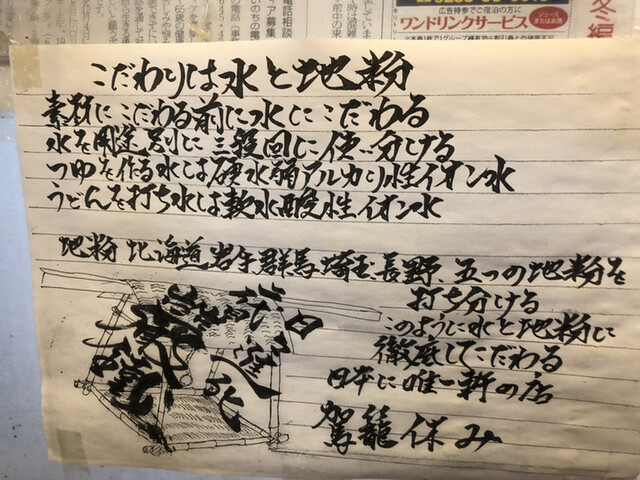 広告持参でご宿泊の方に
ワンドリンクサービス
冬編
こだわりは水と地粉
素材にこだわる前に水にこだわる
水を用途別に三段回に使い分ける
つゆを作る水は硬水弱アルカリ性イオン水
うどんを打ち水は軟水酸性イオン水
地粉 北海道岩手群馬埼玉長野、五つの地粉を
打ち分ける
このように水と地粉に
徹底してこだわる
日本に唯一軒の店
駕籠休み